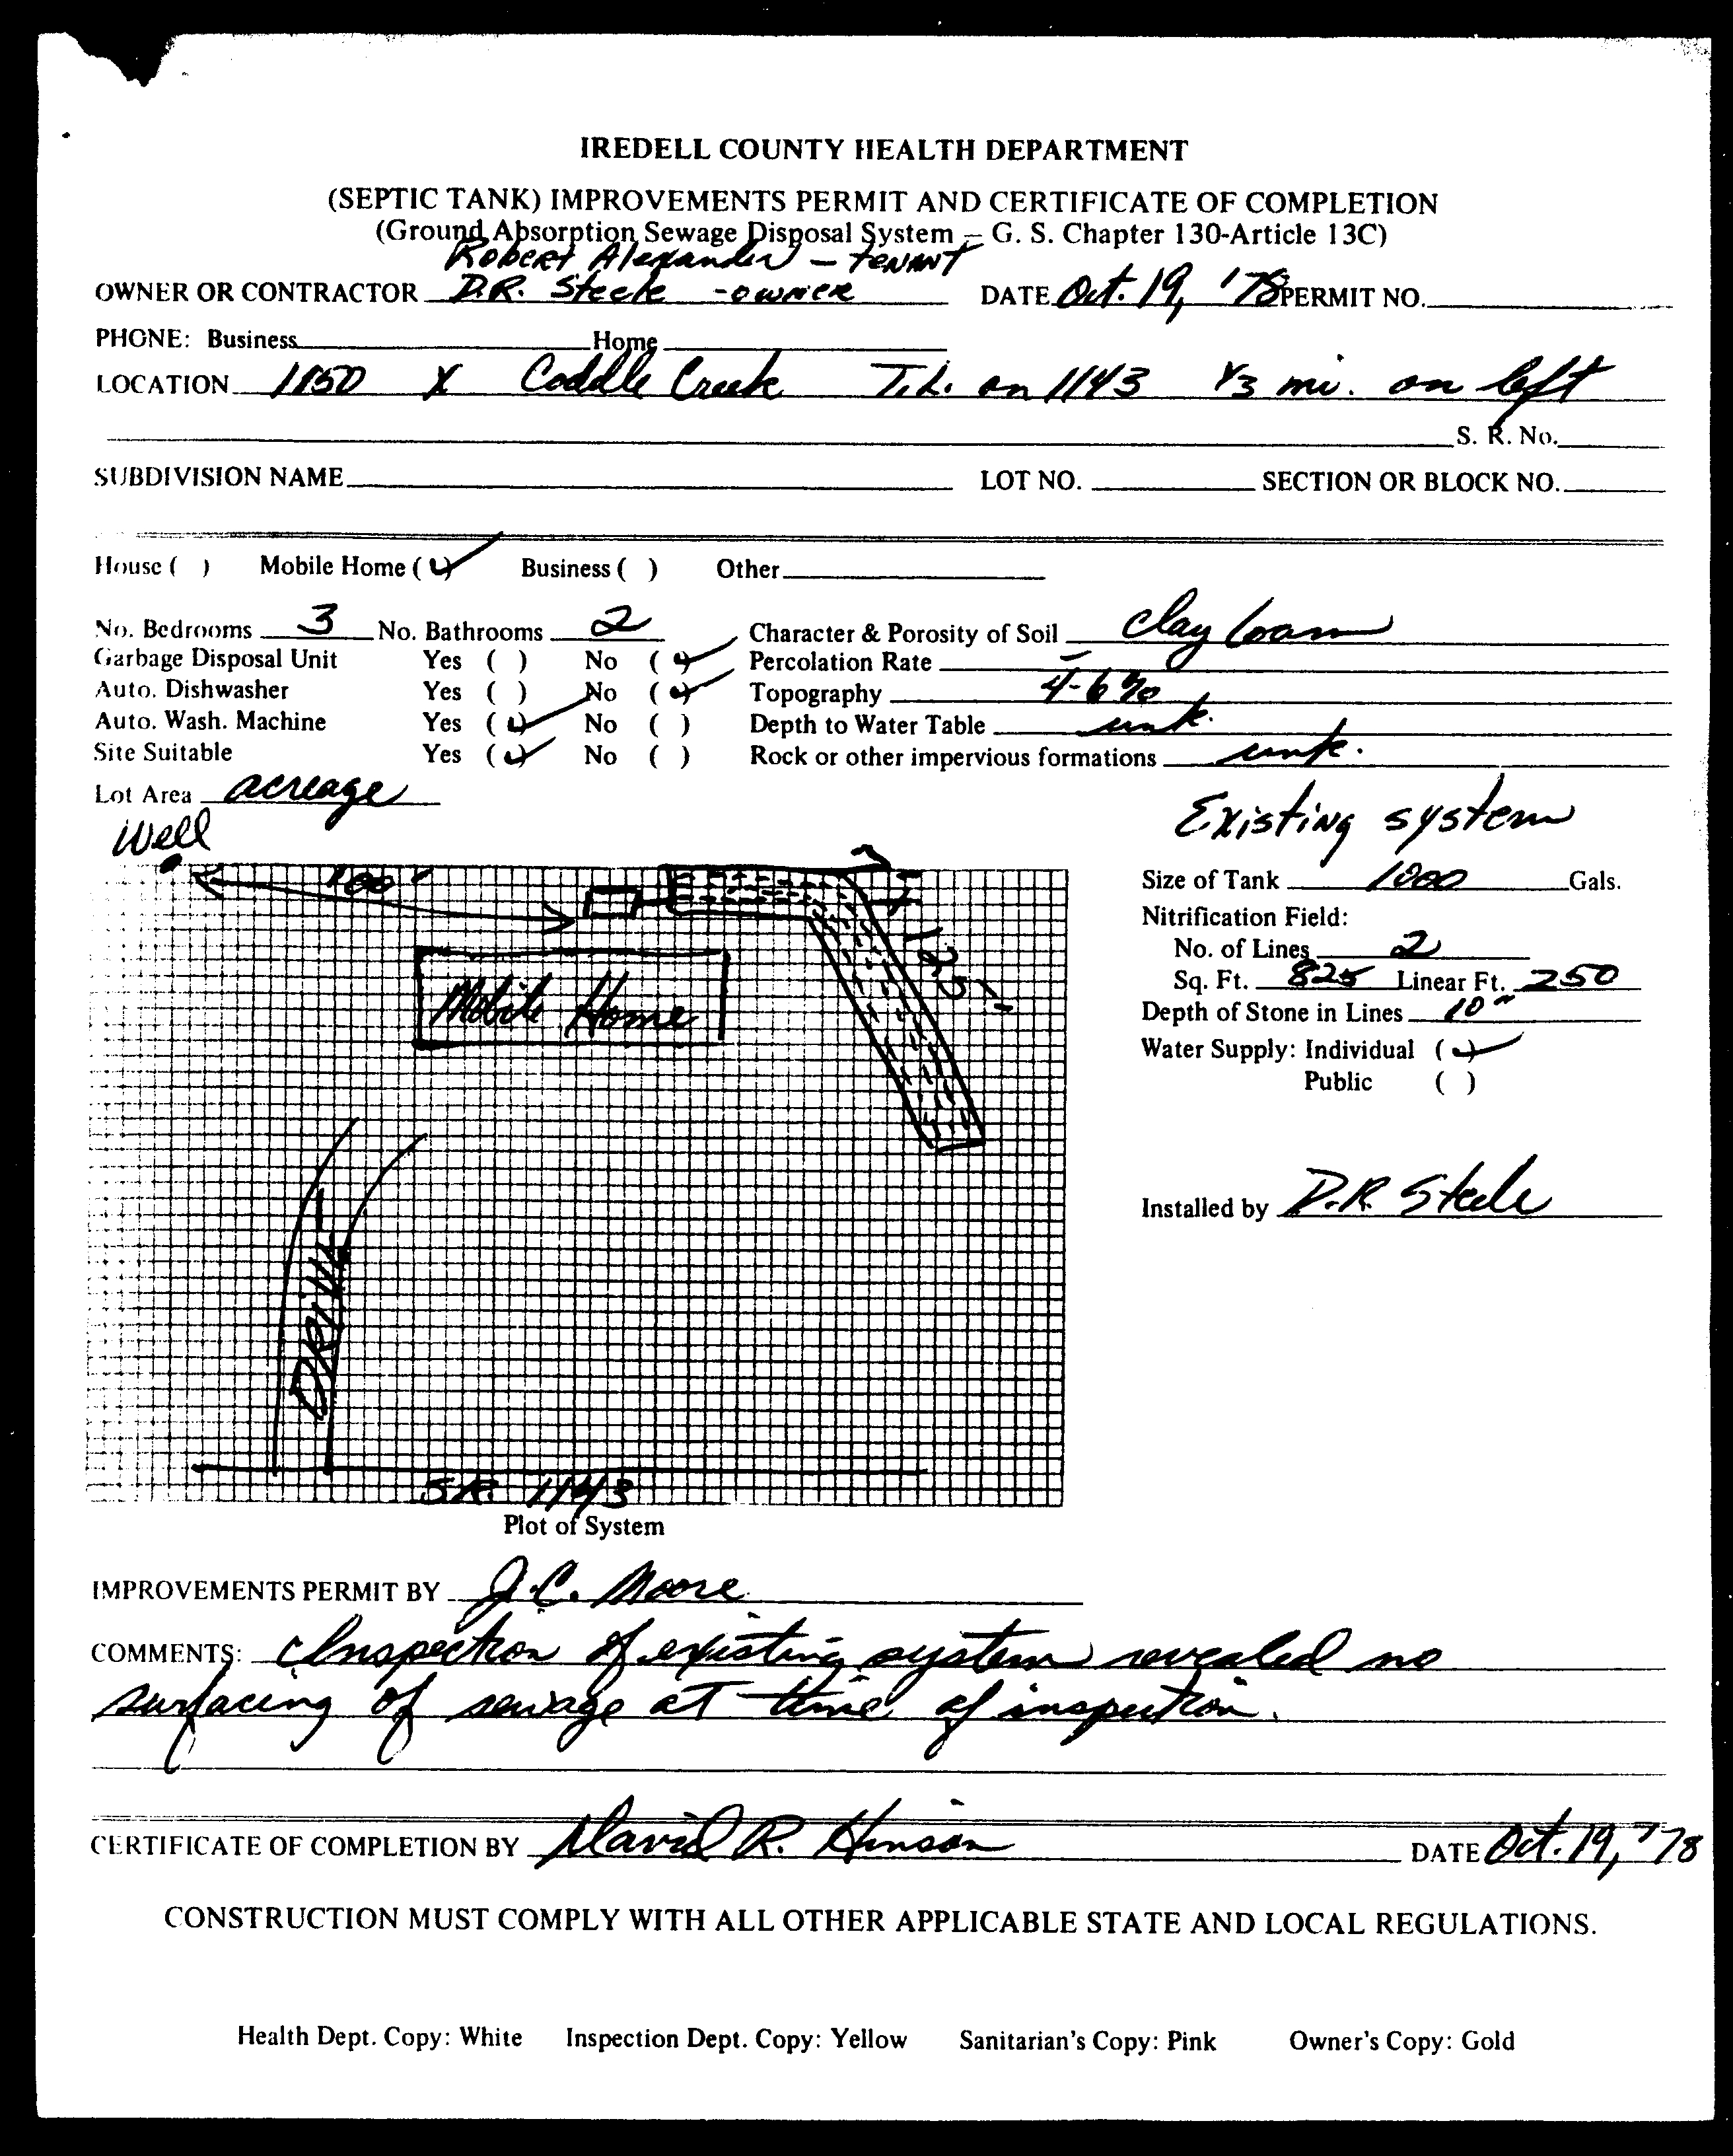 IREDELL COUNTY HEALTH DEPARTMENT
(SEPTIC TANK) IMPROVEMENTS PERMIT AND CERTIFICATE OF COMPLETION
(Ground Absorption Sewage Disposal System – G. S. Chapter 130-Article 13C)
Robert Alexander – TENANT
OWNER OR CONTRACTOR D.R. Steele - OWNER DATE Oct. 19, '78 PERMIT NO.
PHONE: Business Home
LOCATION 1150 X Coddle Creek T.L. on 1143 1/3 mi. on left
S. R. No.
SUBDIVISION NAME LOT NO. SECTION OR BLOCK NO.
House ( ) Mobile Home (✓) Business ( ) Other
No. Bedrooms 3 No. Bathrooms 2 Character & Porosity of Soil Clay loam
Garbage Disposal Unit Yes ( ) No (✓) Percolation Rate –
Auto. Dishwasher Yes ( ) No (✓) Topography 4-6%
Auto. Wash. Machine Yes (✓) No ( ) Depth to Water Table unk.
Site Suitable Yes (✓) No ( ) Rock or other impervious formations unk.
Lot Area acreage
Existing system
Well
100'
Size of Tank 1000 Gals.
Nitrification Field:
No. of Lines 2
125'
Sq. Ft. 825 Linear Ft. 250
Mobile Home
Depth of Stone in Lines 10"
Water Supply: Individual (✓)
Public ( )
Installed by D.R. Steele
DRIVE
S.R. 1143
Plot of System
IMPROVEMENTS PERMIT BY J.C. Moore
COMMENTS: Inspection of existing system revealed no
surfacing of sewage at time of inspection.
CERTIFICATE OF COMPLETION BY David R. Hinson DATE Oct. 19, '78
CONSTRUCTION MUST COMPLY WITH ALL OTHER APPLICABLE STATE AND LOCAL REGULATIONS.
Health Dept. Copy: White Inspection Dept. Copy: Yellow Sanitarian's Copy: Pink Owner's Copy: Gold